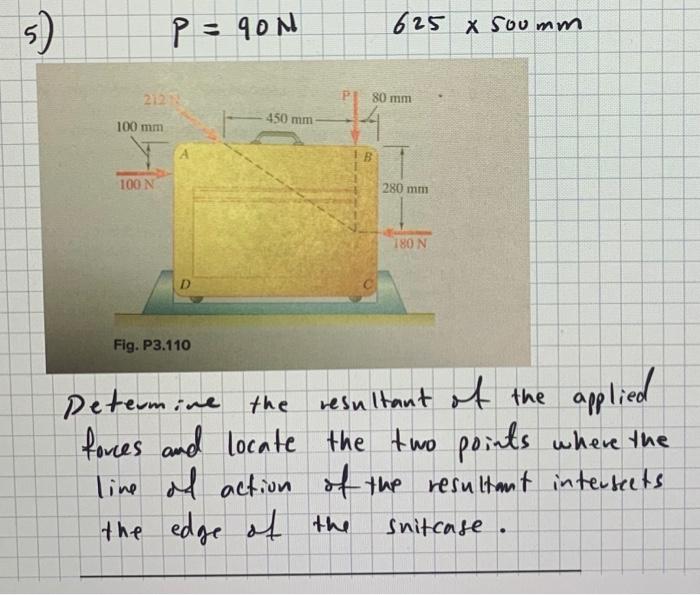 5) P = 90 N 625 x 500 mm
212 N
P 80 mm
450 mm
100 mm
A B
100 N
280 mm
180 N
D C
Fig. P3.110
Determine the resultant of the applied
forces and locate the two points where the
line of action of the resultant intersects
the edge of the suitcase.